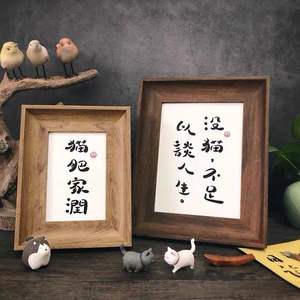 猫肥家潤
没猫，不足
以談人生。